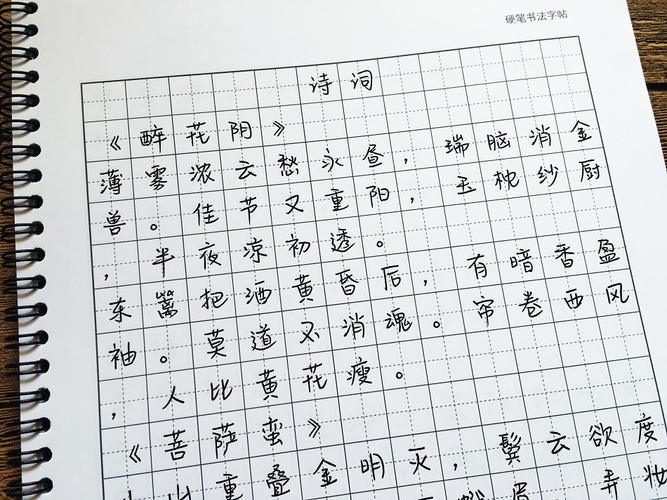 硬笔书法字帖
诗词
《醉花阴》
薄雾浓云愁永昼，瑞脑消金
兽。佳节又重阳，玉枕纱厨
，半夜凉初透。
东篱把酒黄昏后，有暗香盈
袖。莫道不消魂。帘卷西风
，人比黄花瘦。
《菩萨蛮》
山重叠金明灭，鬓云欲度
眉 弄妆